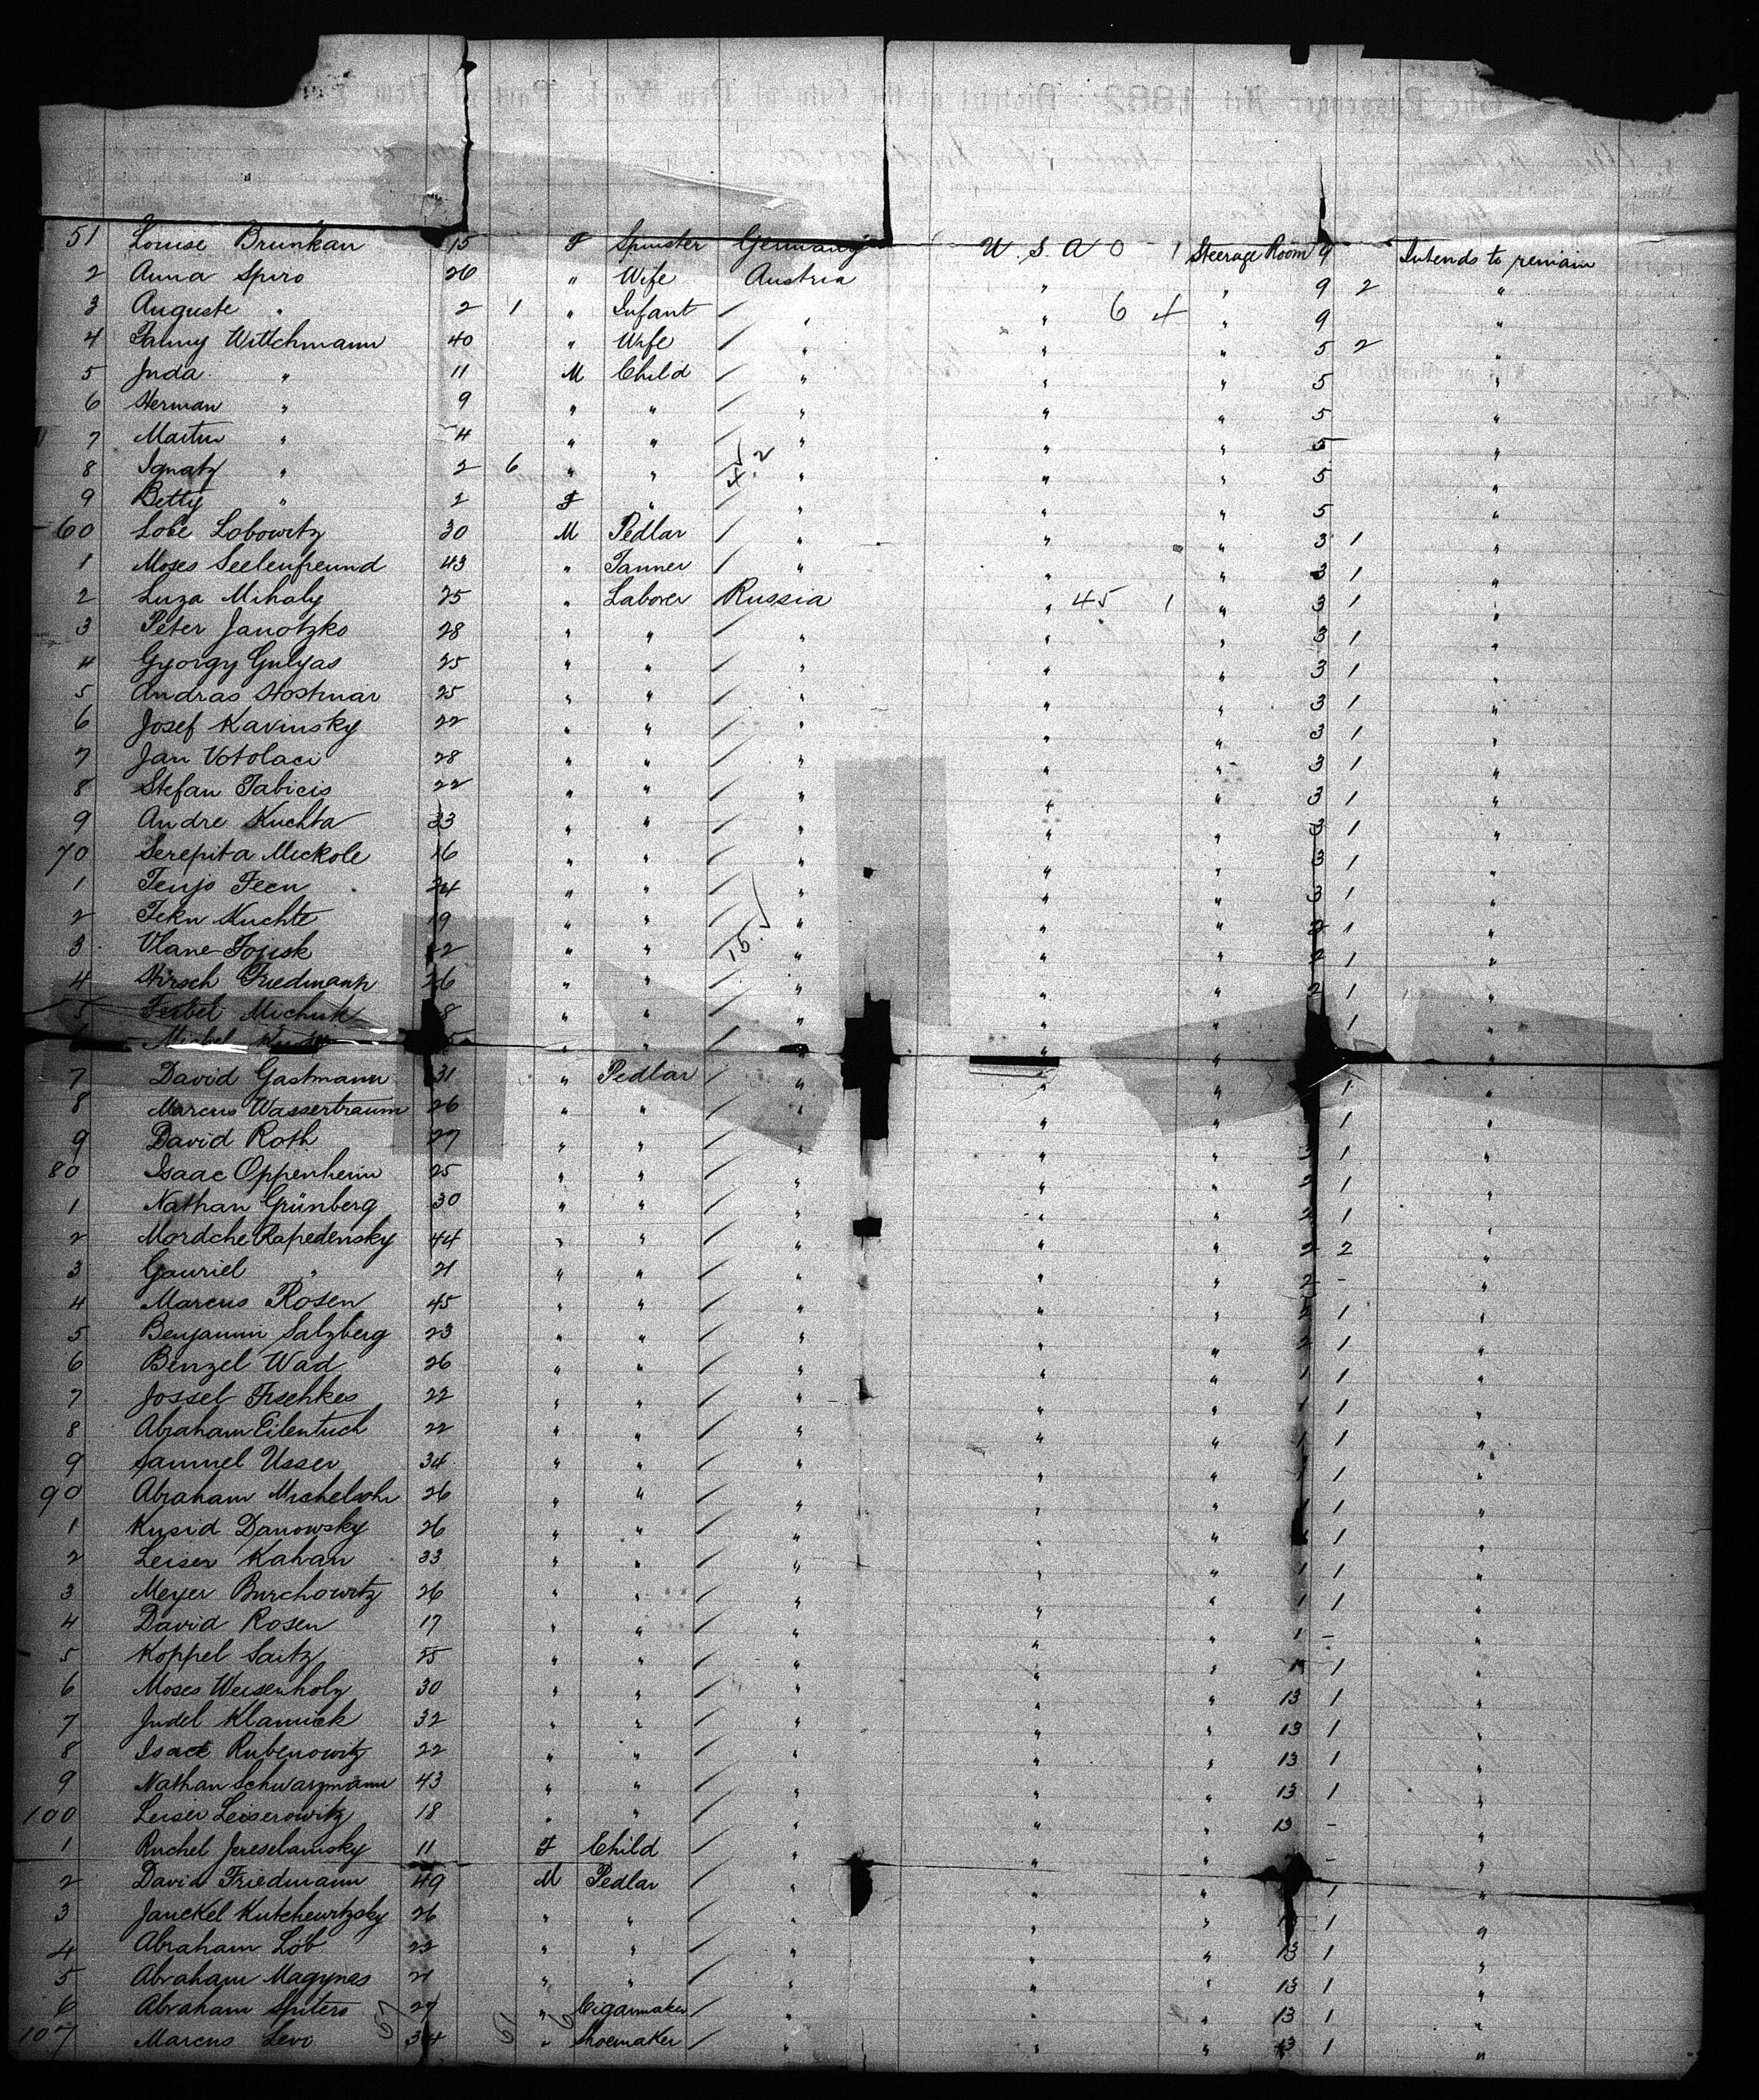 51 Louise Brunkan 15 F Spinster Germany U.S.A 0 1 Steerage Room 9 Intends to remain
2 Anna Spiro 26 " Wife Austria " " 9 2 "
3 Auguste " 2 1 " Infant / " " 6 4 " 9 "
4 Fanny Wittchmann 40 " Wife / " " " 5 2 "
5 Juda " 11 M Child / " " " 5 "
6 Herman " 9 " " / " " " 5 "
7 Martin " 4 " " / " " " 5 "
8 Ignatz " 2 6 " " / " " " 5 "
9 Betty " 2 F " / " " " 5 "
60 Lobe Lobowitz 30 M Pedlar / " " " 3 1 "
1 Moses Seelenfreund 43 " Tanner / " " " 3 1 "
2 Luza Mihaly 25 " Laborer Russia " 45 1 " 3 1 "
3 Peter Janotzko 28 " " / " " " 3 1 "
4 Gyorgy Gulyas 25 " " / " " " 3 1 "
5 Andras Hostinar 25 " " / " " " 3 1 "
6 Josef Kavinsky 22 " " / " " " 3 1 "
7 Jan Votolaci 28 " " / " " " 3 1 "
8 Stefan Tabicis 22 " " / " " " 3 1 "
9 Andre Kuchta 33 " " / " " " 3 1 "
70 Serepita Mickole 16 " " / " " " 3 1 "
1 Tenjo Feen 24 " " / " " " 3 1 "
2 Fekn Kuchte 19 " " / " " " 2 1 "
3 Vlane Fousk " " / 15 " " " 2 1 "
4 Hirsch Friedmann 26 " " / " " " 2 1 "
5 Feibel Michuk " " / " " " 1 "
" " / " " " "
7 David Gastmann 31 " Pedlar / " " " 1 "
8 Marcus Wassertraum 26 " " / " " " 1 "
9 David Roth 27 " " / " " " 1 "
80 Isaac Oppenheim 25 " " / " " " 2 1 "
1 Nathan Grünberg 30 " " / " " " 2 1 "
2 Mordche Rapedensky 44 " " / " " " 2 2 "
3 Gauriel " 21 " " / " " " 2 - "
4 Marcus Rosen 45 " " / " " " 2 1 "
5 Benjamin Salzberg 23 " " / " " " 2 1 "
6 Benzel Wad 26 " " / " " " 1 1 "
7 Jossel Fischkes 22 " " / " " " 1 1 "
8 Abraham Eilentuch 22 " " / " " " 1 1 "
9 Samuel Usser 34 " " / " " " 1 1 "
90 Abraham Michelsohn 26 " " / " " " 1 1 "
1 Kusid Danowsky 26 " " / " " " 1 "
2 Leiser Kahan 33 " " / " " " 1 1 "
3 Meyer Burchowitz 26 " " / " " " 1 1 "
4 David Rosen 17 " " / " " " 1 - "
5 Koppel Saitz 25 " " / " " " 1 "
6 Moses Weisenholz 30 " " / " " " 13 1 "
7 Judel Klamick 32 " " / " " " 13 1 "
8 Isaac Rubenowitz 22 " " / " " " 13 1 "
9 Nathan Schwarzmann 43 " " / " " " 13 1 "
100 Leiser Leiserowitz 18 " " / " " " 13 - "
1 Ruchel Jereselamsky 11 F Child / " " " - "
2 David Friedmann 49 M Pedlar / " " " 1 "
3 Janckel Kutchewitzsky 26 " " / " " " 1 "
4 Abraham Löb 22 " " / " " " 13 1 "
5 Abraham Magynes 21 " " / " " " 13 1 "
6 Abraham Spitero 27 " Cigarmaker / " " " 13 1 "
107 Marcus Levi 34 " Shoemaker / " " " 13 1 "